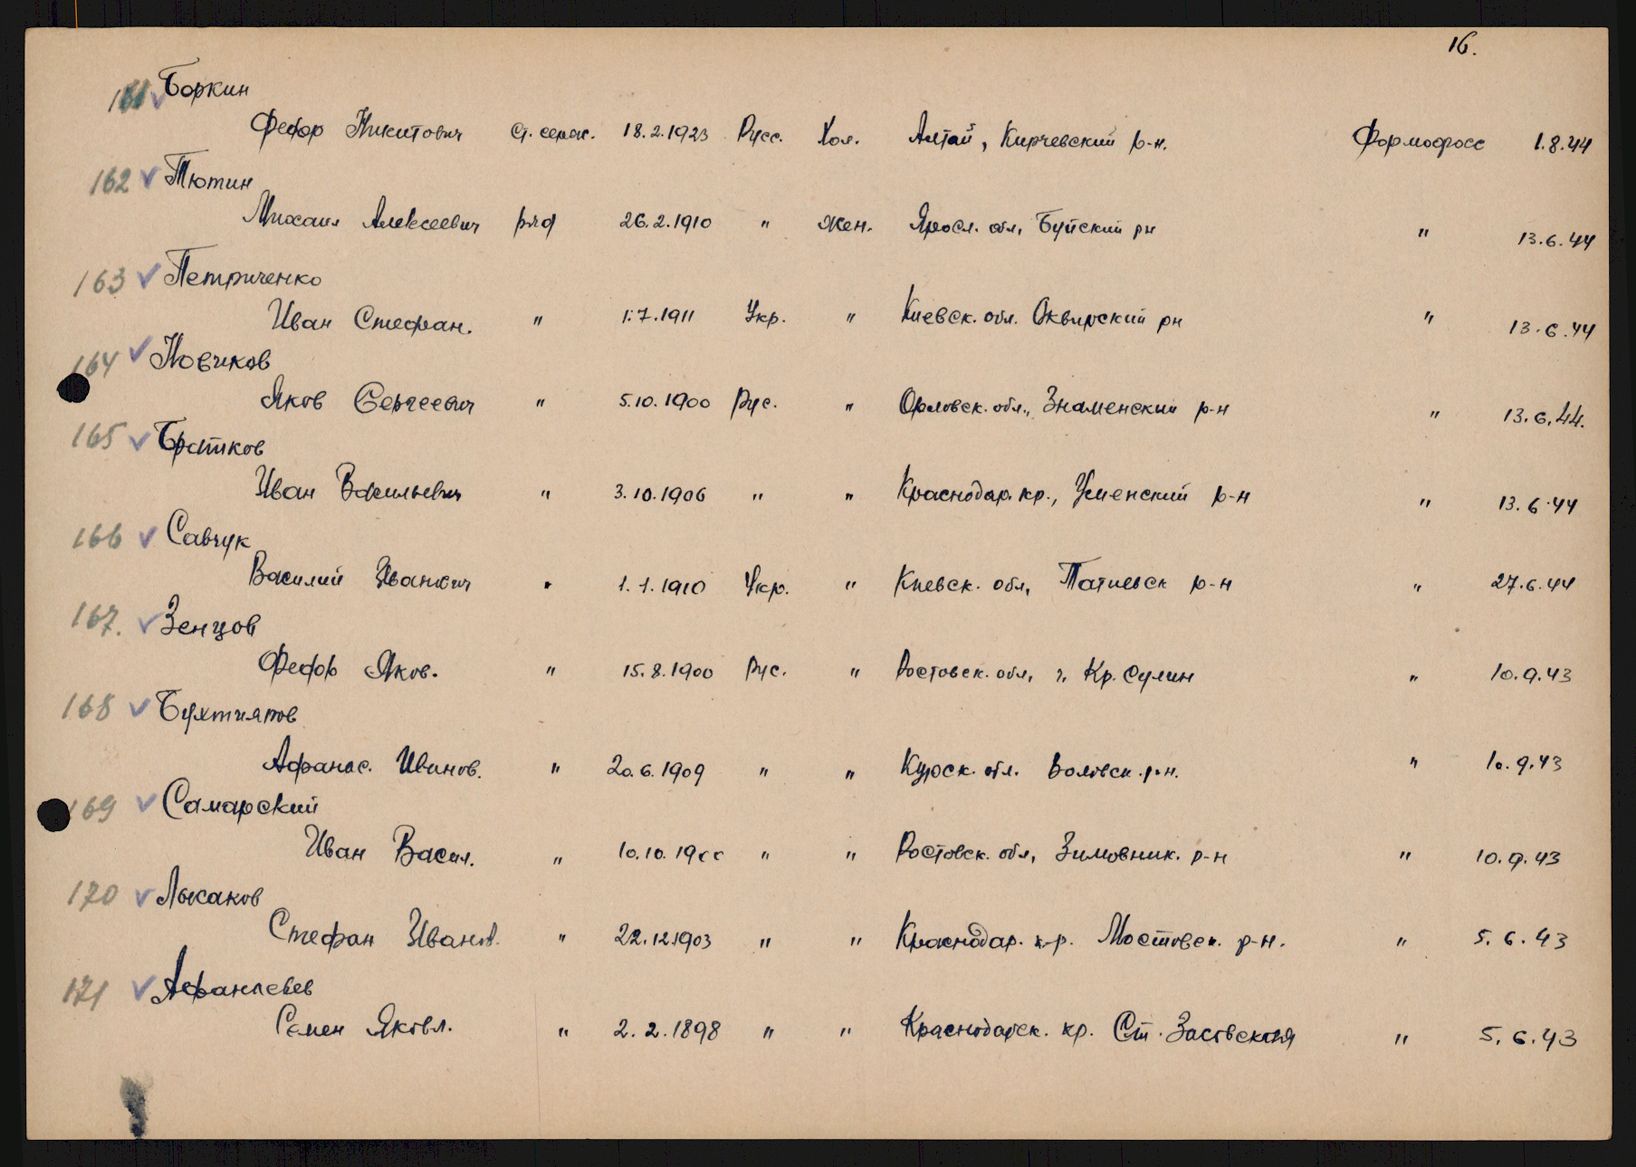 16.
161 Боркин
Федор Никитович ст. серж. 18.2.1923 Русс. Хол. Алтай, Кирчевский р-н. Формофосс 1.8.44
162 Тютин
Михаил Алексеевич ряд 26.2.1910 " жен. Яросл. обл, Буйский рн " 13.6.44
163 Петриченко
Иван Стефан. " 1.7.1911 Укр. " Киевск. обл. Сквирский рн " 13.6.44
164 Новиков
Яков Сергеевич " 5.10.1900 Рус. " Орловск. обл., Знаменский р-н " 13.6.44.
165 Братков
Иван Васильевич " 3.10.1906 " " Краснодар. кр., Успенский р-н " 13.6.44
166 Савчук
Василий Иванович " 1.1.1910 Укр. " Киевск. обл, Татиевск р-н " 27.6.44
167. Зенцов
Федор Яков. " 15.8.1900 Рус. " Ростовск. обл, г. Кр. Сулин " 10.9.43
168 Бухтияров
Афанас. Иванов. " 20.6.1909 " " Курск. обл. Воловск. р-н. " 10.9.43
169 Самарский
Иван Васил. " 10.10.1900 " " Ростовск. обл, Зимовник. р-н " 10.9.43
170 Лысаков
Стефан Иванов. " 22.12.1903 " " Краснодар. кр. Мостовск. р-н. " 5.6.43
171 Афанасьев
Семен Яковл. " 2.2.1898 " " Краснодарск. кр. Ст. Засовская " 5.6.43